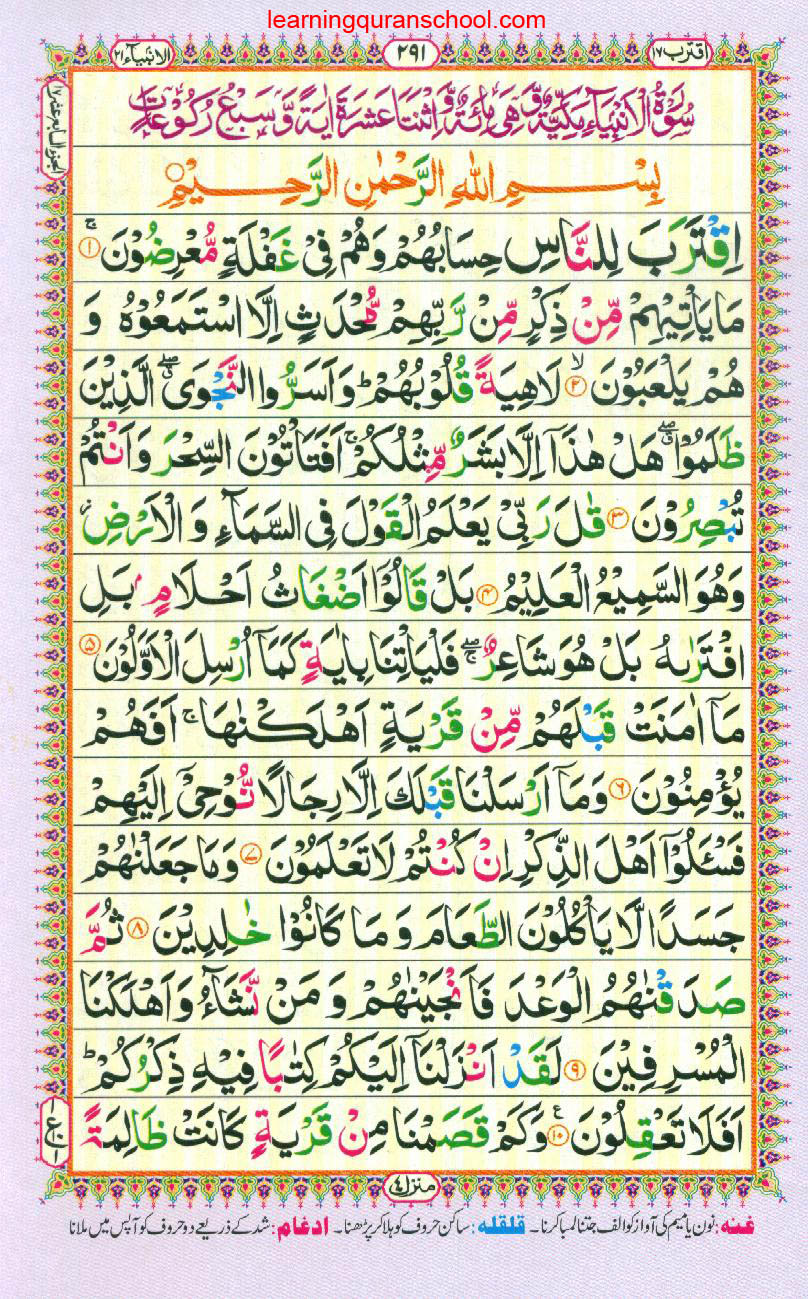 learningquranschool.com
اقترب ١٧
٢٩١
الانبیآء ٢١
الجزء السابع عشر ١٧
سُوْرَةُ الْاَنْۢبِیَآءِ مَكِّیَّةٌ وَّهِیَ مِائَةٌ وَّاثْنَتَا عَشَرَةَ اٰیَةً وَّسَبْعُ رُكُوْعَاتٍ
بِسْمِ اللّٰهِ الرَّحْمٰنِ الرَّحِیْمِ
اِقْتَرَبَ لِلنَّاسِ حِسَابُهُمْ وَهُمْ فِیْ غَفْلَةٍ مُّعْرِضُوْنَ ۚ ۝١
مَا یَاْتِیْهِمْ مِّنْ ذِكْرٍ مِّنْ رَّبِّهِمْ مُّحْدَثٍ اِلَّا اسْتَمَعُوْهُ وَ
هُمْ یَلْعَبُوْنَ ۙ ۝٢ لَاهِیَةً قُلُوْبُهُمْ ؕ وَاَسَرُّوا النَّجْوَی ۖۗ الَّذِیْنَ
ظَلَمُوْا ۖۗ هَلْ هٰذَاۤ اِلَّا بَشَرٌ مِّثْلُكُمْ ۚ اَفَتَاْتُوْنَ السِّحْرَ وَاَنْتُمْ
تُبْصِرُوْنَ ۝٣ قٰلَ رَبِّیْ یَعْلَمُ الْقَوْلَ فِی السَّمَآءِ وَ الْاَرْضِ ؗ
وَهُوَ السَّمِیْعُ الْعَلِیْمُ ۝٤ بَلْ قَالُوْۤا اَضْغَاثُ اَحْلَامٍۭ بَلِ
افْتَرٰىهُ بَلْ هُوَ شَاعِرٌ ۖۚ فَلْیَاْتِنَا بِاٰیَةٍ كَمَاۤ اُرْسِلَ الْاَوَّلُوْنَ ۝٥
مَاۤ اٰمَنَتْ قَبْلَهُمْ مِّنْ قَرْیَةٍ اَهْلَكْنٰهَا ۚ اَفَهُمْ
یُؤْمِنُوْنَ ۝٦ وَمَاۤ اَرْسَلْنَا قَبْلَكَ اِلَّا رِجَالًا نُّوْحِیْۤ اِلَیْهِمْ
فَسْـَٔلُوْۤا اَهْلَ الذِّكْرِ اِنْ كُنْتُمْ لَا تَعْلَمُوْنَ ۝٧ وَمَا جَعَلْنٰهُمْ
جَسَدًا لَّا یَاْكُلُوْنَ الطَّعَامَ وَ مَا كَانُوْا خٰلِدِیْنَ ۝٨ ثُمَّ
صَدَقْنٰهُمُ الْوَعْدَ فَاَنْجَیْنٰهُمْ وَ مَنْ نَّشَآءُ وَاَهْلَكْنَا
الْمُسْرِفِیْنَ ۝٩ لَقَدْ اَنْزَلْنَاۤ اِلَیْكُمْ كِتٰبًا فِیْهِ ذِكْرُكُمْ ؕ
اَفَلَا تَعْقِلُوْنَ ۝١٠ ع وَكَمْ قَصَمْنَا مِنْ قَرْیَةٍ كَانَتْ ظَالِمَةً
منزل ٤
غنہ: نون یا میم کی آواز کو الف جتنا لمبا کرنا۔ قلقلہ: ساکن حروف کو ہلا کر پڑھنا۔ ادغام: شد کے ذریعے دو حروف کو آپس میں ملانا